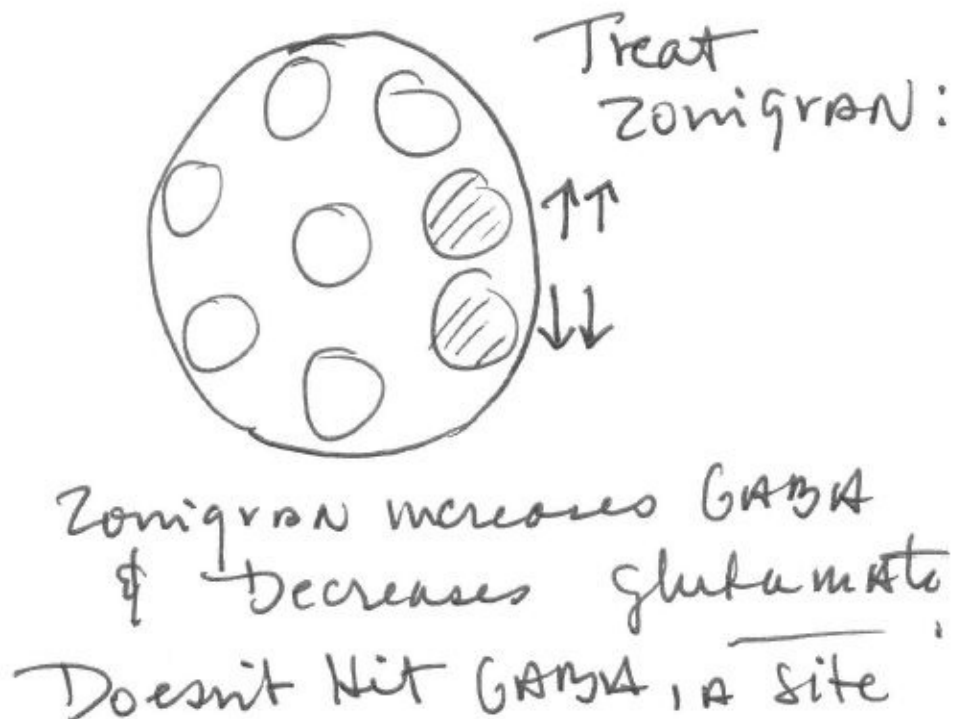 Treat
Zonigran:
↑↑
↓↓
Zonigran increases GABA
& Decreases glutamate.
Doesn't Hit GABA, A site